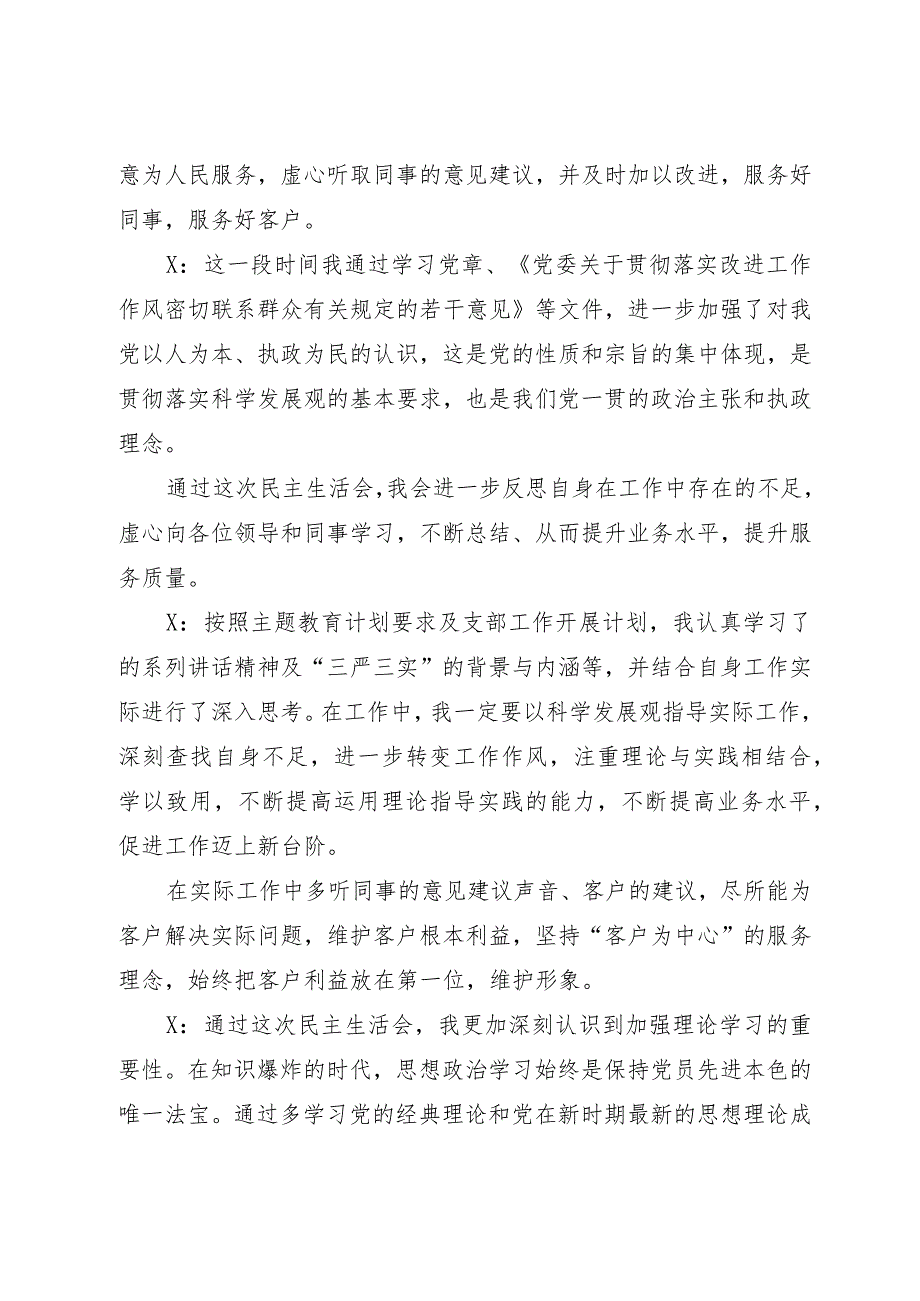 意为人民服务，虚心听取同事的意见建议，并及时加以改进，服务好
同事，服务好客户。
X：这一段时间我通过学习党章、《党委关于贯彻落实改进工作
作风密切联系群众有关规定的若干意见》等文件，进一步加强了对我
党以人为本、执政为民的认识，这是党的性质和宗旨的集中体现，是
贯彻落实科学发展观的基本要求，也是我们党一贯的政治主张和执政
理念。
通过这次民主生活会，我会进一步反思自身在工作中存在的不足，
虚心向各位领导和同事学习，不断总结、从而提升业务水平，提升服
务质量。
X：按照主题教育计划要求及支部工作开展计划，我认真学习了
的系列讲话精神及“三严三实”的背景与内涵等，并结合自身工作实
际进行了深入思考。在工作中，我一定要以科学发展观指导实际工作，
深刻查找自身不足，进一步转变工作作风，注重理论与实践相结合，
学以致用，不断提高运用理论指导实践的能力，不断提高业务水平，
促进工作迈上新台阶。
在实际工作中多听同事的意见建议声音、客户的建议，尽所能为
客户解决实际问题，维护客户根本利益，坚持“客户为中心”的服务
理念，始终把客户利益放在第一位，维护形象。
X：通过这次民主生活会，我更加深刻认识到加强理论学习的重
要性。在知识爆炸的时代，思想政治学习始终是保持党员先进本色的
唯一法宝。通过多学习党的经典理论和党在新时期最新的思想理论成